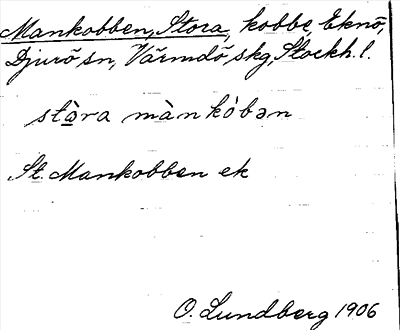 Mankobben, Stora, kobbe, Eknö,
Djurö sn, Värmdö skg, Stockh. l.
stòra mànkóbən
St. Mankobben ek
O. Lundberg 1906